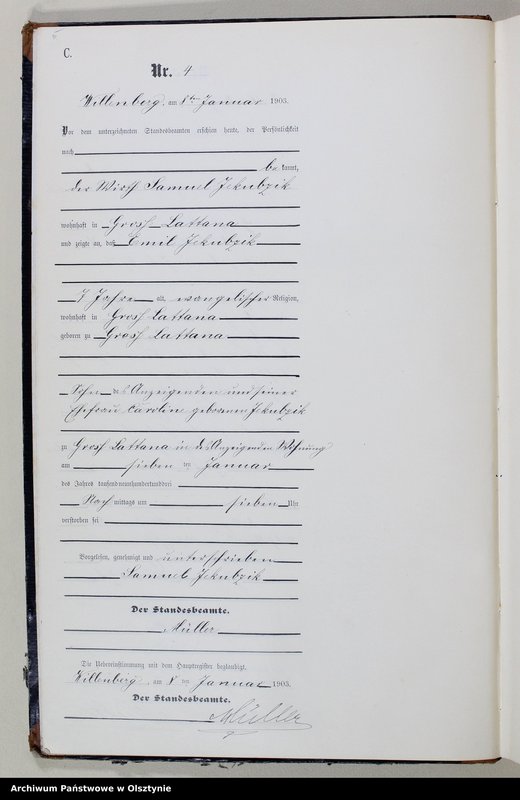 C.
Nr. 4
Willenberg, am 8ten Januar 1903.
Vor dem unterzeichneten Standesbeamten erschien heute, der Persönlichkeit
nach
be kannt,
der Wirth Samuel Jekubzik
wohnhaft in Groß Lattana
und zeigte an, daß Emil Jekubzik
7 Jahre alt, evangelischer Religion,
wohnhaft in Groß Lattana
geboren zu Groß Lattana
Sohn des Anzeigenden und seiner
Ehefrau Caroline geborenen Jekubzik
zu Groß Lattana in des Anzeigenden Wohnung
am sieben ten Januar
des Jahres tausendneunhundertunddrei
Nach mittags um sieben Uhr
verstorben sei
Vorgelesen, genehmigt und unterschrieben
Samuel Jekubzik
Der Standesbeamte.
Müller
Die Uebereinstimmung mit dem Hauptregister beglaubigt.
Willenberg, am 8 ten Januar 1903.
Der Standesbeamte.
Müller
Archiwum Państwowe w Olsztynie